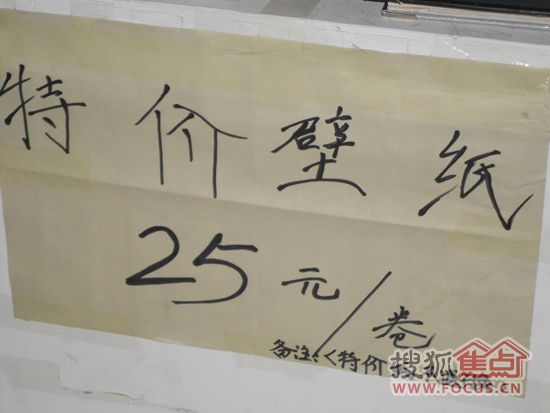 特价壁纸
25元/卷
备注:<特价
搜狐焦点
WWW.FOCUS.CN